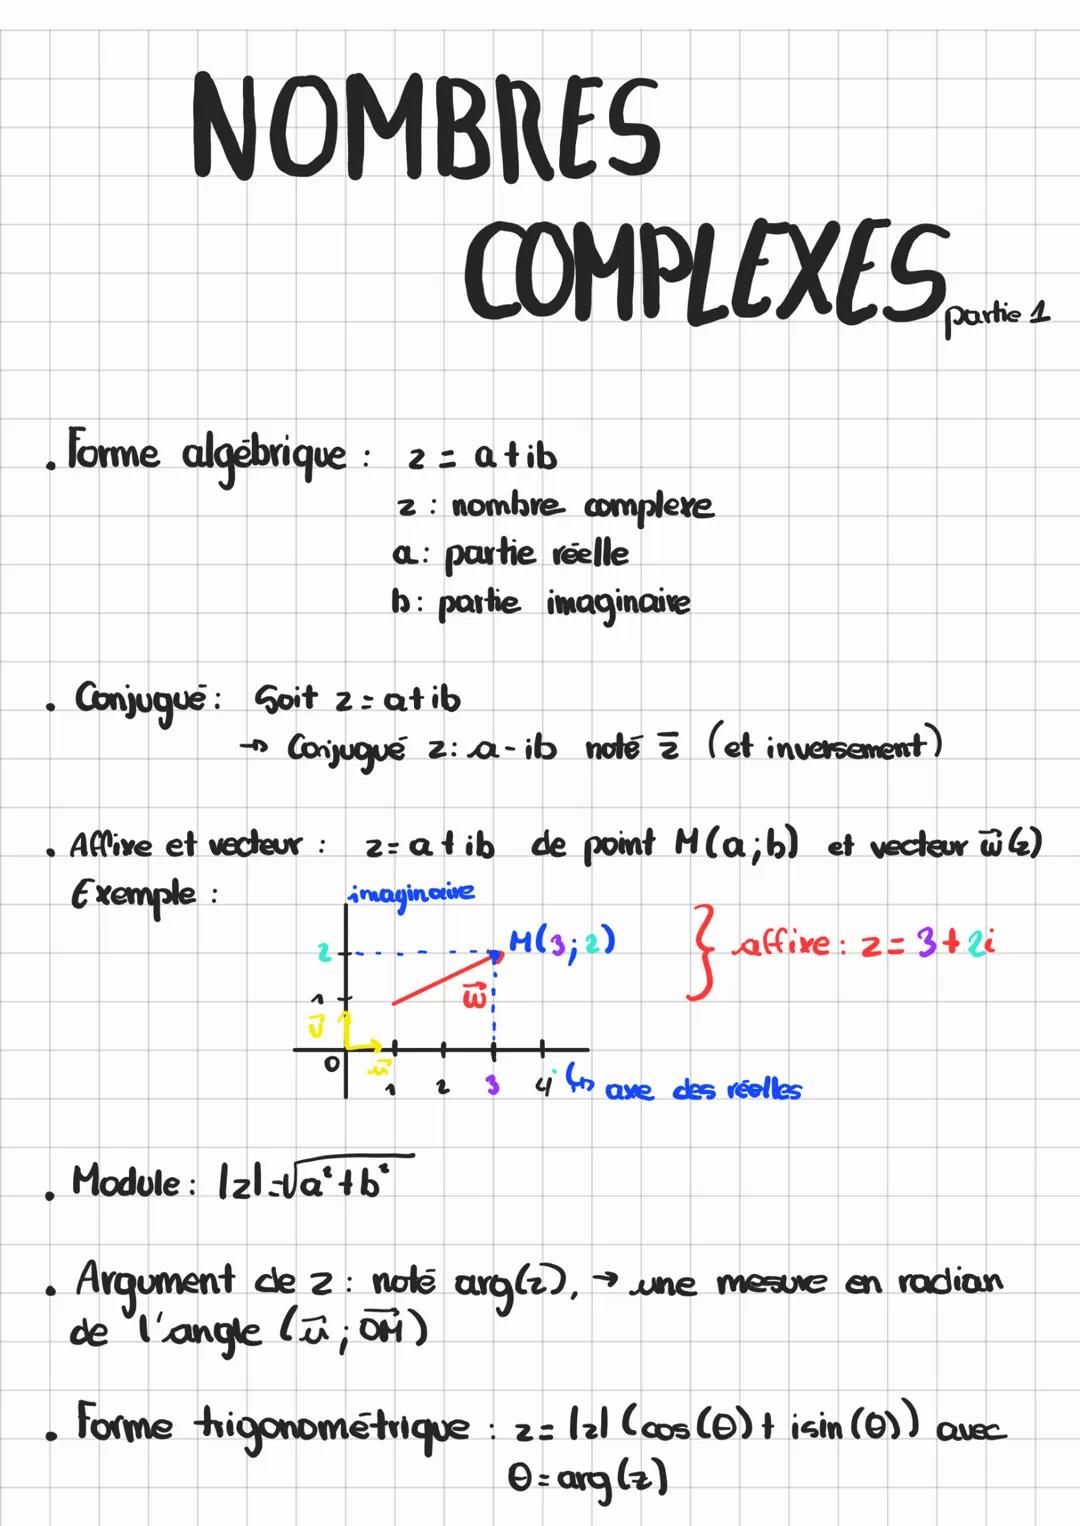 NOMBRES
COMPLEXES partie 1
. Forme algébrique : z = a+ib
z : nombre complexe
a : partie réelle
b : partie imaginaire
. Conjugué : Soit z = a+ib
→ Conjugué z : a-ib noté z̅ (et inversement)
. Affixe et vecteur : z = a+ib de point M(a;b) et vecteur w⃗(z)
Exemple :
imaginaire
2
M(3;2)
} affixe : z = 3+2i
1
w⃗
v⃗
0
u⃗
1 2 3 4
↳ axe des réelles
. Module : |z| = √a²+b²
. Argument de z : noté arg(z), → une mesure en radian
de l'angle (u⃗ ; OM⃗)
. Forme trigonométrique : z = |z| (cos(θ) + isin(θ)) avec
θ = arg(z)